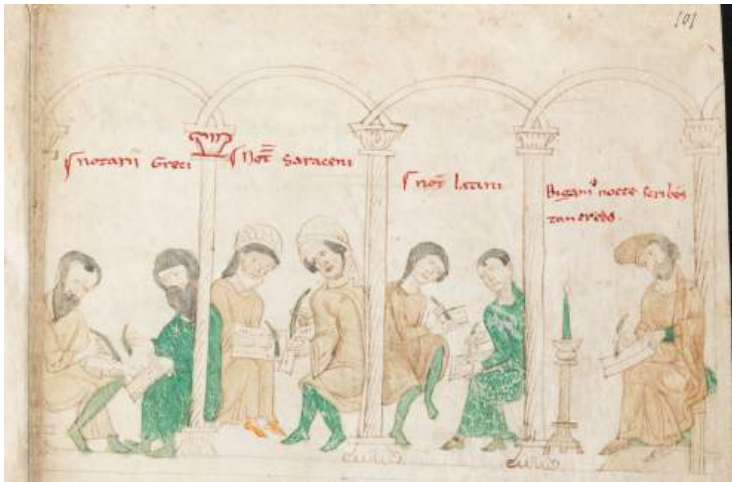 101
notarii Greci
Not̄ Saraceni
not̄ latini
Bigam⁹ nocte scribēs
tancredo.